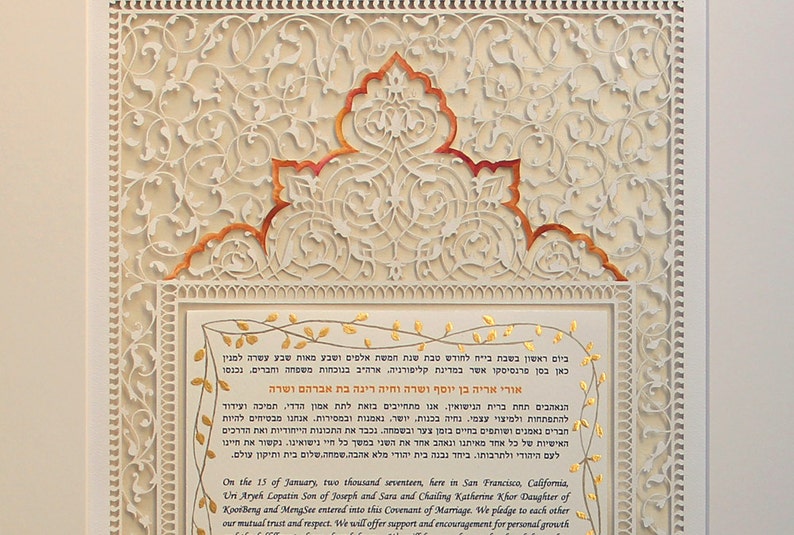 ביום ראשון בשבת בי״ח לחודש טבת שנת חמשת אלפים ושבע מאות שבע עשרה למנין
כאן בסן פרנסיסקו אשר במדינת קליפורניה. ארהי״ב בנוכחות משפחה וחברים. נכנסו
אורי אריה בן יוסף ושרה וחיה רינה בת אברהם ושרה
הנאהבים תחת ברית הנישואין. אנו מתחייבים בזאת לתת אמון הדדי, תמיכה ועידוד
להתפתחות ולמיצוי עצמי. נחיה בכנות, יושר, נאמנות ובמסירות. אנחנו מבטיחים להיות
חברים נאמנים ושותפים בחיים בזמן צער ובשמחה. נכבד את התכונות הייחודיות ואת הדרכים
האישיות של כל אחד מאיתנו ונאהב אחד את השני במשך כל חיי נישואינו. נקשור את חיינו
לעם היהודי ולתרבותו. ביחד נבנה בית יהודי מלא אהבה,שמחה,שלום בית ותיקון עולם.
On the 15 of January, two thousand seventeen, here in San Francisco, California,
Uri Aryeh Lopatin Son of Joseph and Sara and Chailing Katherine Khor Daughter of
KooiBeng and MengSee entered into this Covenant of Marriage. We pledge to each other
our mutual trust and respect. We will offer support and encouragement for personal growth